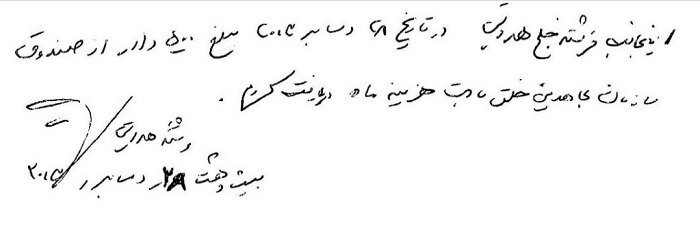 اینجانب فرشته خلج هدایتی در تاریخ ۲۸ دسامبر ۲۰۱۳ مبلغ ۵۰۰ دلار از صندوق
سازمان مجاهدین خلق بابت هزینه ماه دریافت کردم.
فرشته هدایتی
بیست و هشت ۲۸ دسامبر ۲۰۱۳